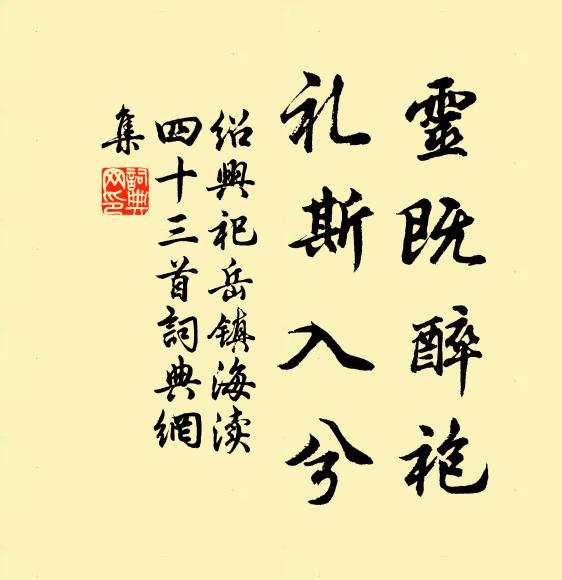 靈既醉袍
礼斯入兮
绍興祀岳镇海渎
四十三首詞典網
集
詞典網印